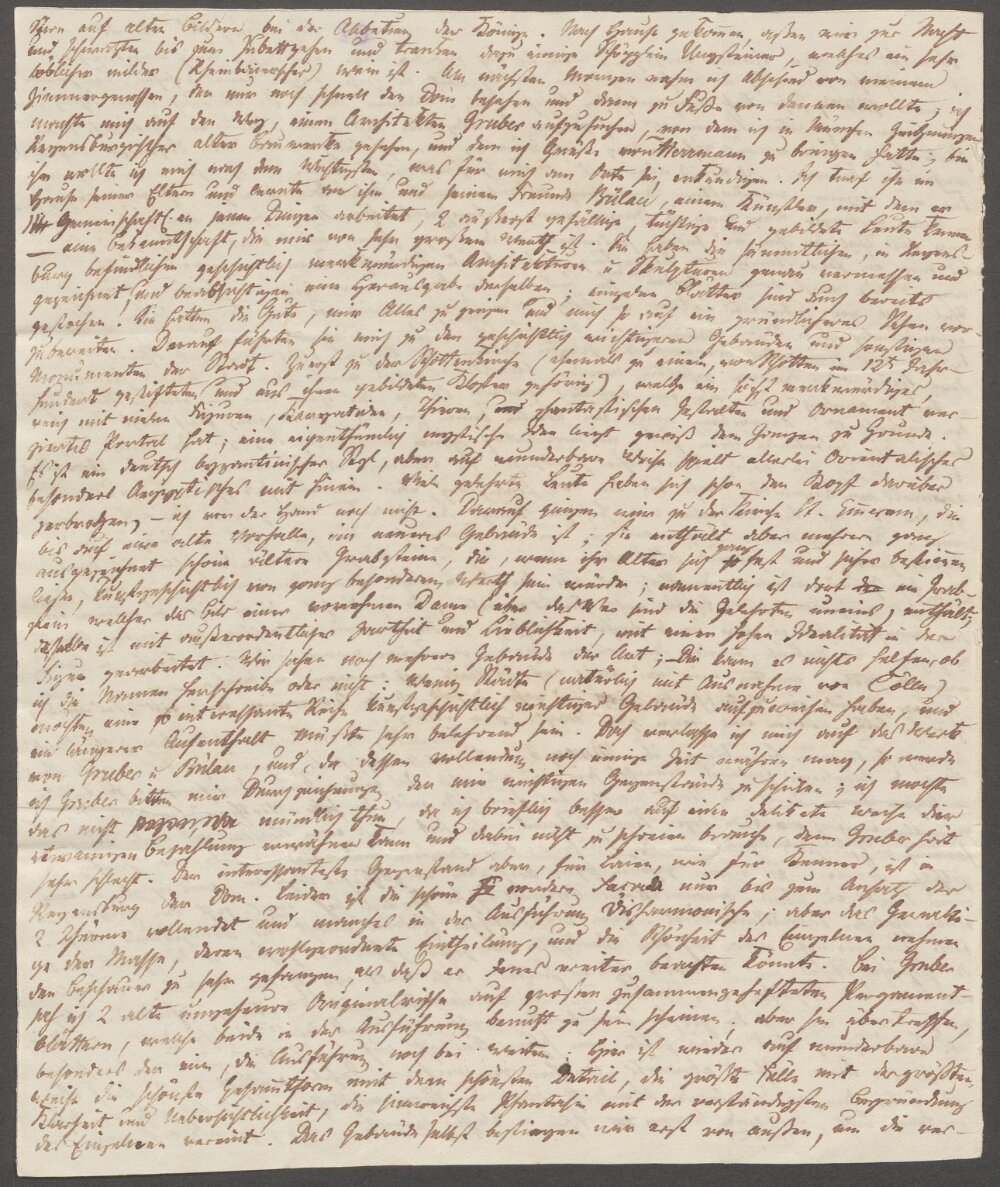 Stern auf alten Bildern bei der Anbetung der Könige. Nach Hause gekommen, aßen wir zur Nacht
und schwatzten bis zum Zubettgehen und tranken dazu einige Schöpplein Ungsteiner, welches ein sehr
löblicher milder (Rheinbairischer) Wein ist. Am nächsten Morgen nahm ich Abschied von meinem
Zimmergenossen, der nur noch schnell den Dom besehen und dann zu Fuße von dannen wollte; ich
machte mich auf den Weg, einen Architekten Gruber aufzusuchen, von dem ich in München Zeichnungen
Regensburgischer alter Bauwerke gesehen, und dem ich Grüße von Herrmann zu bringen hatte; bei
ihm wollte ich mich nach dem Wichtigsten, was für mich am Orte sei, erkundigen. Ich traf ihn im
Hause seiner Eltern und lernte in ihm und seinem Freunde Bülau, einem Künstler, mit dem er
in Gemeinschaft an jenen Dingen arbeitet, 2 äußerst gefällige, tüchtige und gebildete Leute kennen
– eine Bekanntschaft, die mir von sehr großem Werth ist. Sie haben die sämmtlichen, in Regens-
burg befindlichen geschichtlich merkwürdigen Architekturen u Skulpturen genau vermessen und
gezeichnet und beabsichtigen eine Herausgabe derselben; einzelne Blätter sind auch bereits
gestochen. Sie hatten die Güte, mir Alles zu zeigen und mich so auf ein gründlicheres Sehen vor
zubereiten. Darauf führten sie mich zu den geschichtlich wichtigeren Gebäuden und sonstigen
Monumenten der Stadt. Zuerst zu der Schottenkirche (ehemals zu einem, von Schotten im 12t Jahr-
hundert gestifteten und aus ihnen gebildeten Kloster gehörig), welche ein höchst merkwürdiges,
reich mit vielen Figuren, Karyatiden, Thieren, und phantastischen Gestalten und Ornament ver-
ziertes Portal hat; eine eigenthümlich mystische Idee liegt gewiß dem Ganzen zu Grunde.
Es ist ein deutsch byzantinischer Styl, aber auf wunderbare Weise spielt allerlei Orientalisches
besonders Aegyptisches mit hinein. Viele gelehrte Leute haben sich schon den Kopf darüber
zerbrochen, – ich vor der Hand noch nicht. Darauf gingen wir zu der Kirche St. Emeram, die
bis auf eine alte Vorhalle, ein neueres Gebäude ist; sie enthält aber mehrere ganz
ausgezeichnet schöne ältere Grabsteine, die, wenn ihr Alter sich ganz fest und sicher bestimmen
ließe, kunstgeschichtlich von ganz besonderem Werth sein würden; namentlich ist dort ein Grab-
stein welcher das Bild einer vornehmen Dame (über das Wer sind die Gelehrten uneins) enthält;
dasselbe ist mit außerordentlicher Zartheit und Lieblichkeit, mit einer hohen Idealität in der
Figur gearbeitet. Wir sahen noch mehrere Gebäude der Art; Dir kann es nichts helfen, ob
ich die Namen herschreibe oder nicht. Wenig Städte (natürlich mit Ausnahme von Cölln)
möchten eine so interessante Reihe kunstgeschichtlich wichtiger Gebäude aufzuweisen haben, und
ein längerer Aufenthalt müßte sehr belehrend sein. Doch verlasse ich mich auf das Werk
von Gruber u Bülau, und, da dessen Vollendung noch einige Zeit währen mag, so werde
ich Gruber bitten mir Durchzeichnungen der mir wichtigen Gegenstände zu schicken; ich mochte
das nicht mündlich thun, da ich brieflich besser auf eine delikate Weise der
etwanigen Bezahlung erwähnen kann und dabei nicht zu schreien brauche, denn Gruber hört
sehr schlecht. Der interessanteste Gegenstand aber, für Laien, wie für Kenner, ist in
Regensburg der Dom. Leider ist die schöne vordere Facade nur bis zum Ansatz der
2 Thürme vollendet und manches in der Ausführung disharmonische; aber das Gewalti-
ge der Masse, deren wohlgeordnete Eintheilung, und die Schönheit des Einzelnen nehmen
den Beschauer zu sehr gefangen, als daß er Jenes weiter beachten könnte. Bei Gruber
sah ich 2 alte ungeheure Originalrisse auf großen zusammengehefteten Pergament-
blättern, welche beide in der Ausführung benutzt zu sein scheinen. aber sie übertreffen,
besonders der eine, die Ausführung noch bei weitem. Hier ist wieder auf wunderbare
Weise die schönste Gesammtform mit dem schönsten Detail, die größte Fülle mit der größten
Klarheit und Uebersichtlichkeit, die sinnreichste Phantasie mit der verständigsten Anordnung
des Einzelnen vereint. Das Gebäude selbst bestiegen wir erst von außen, um die ver-